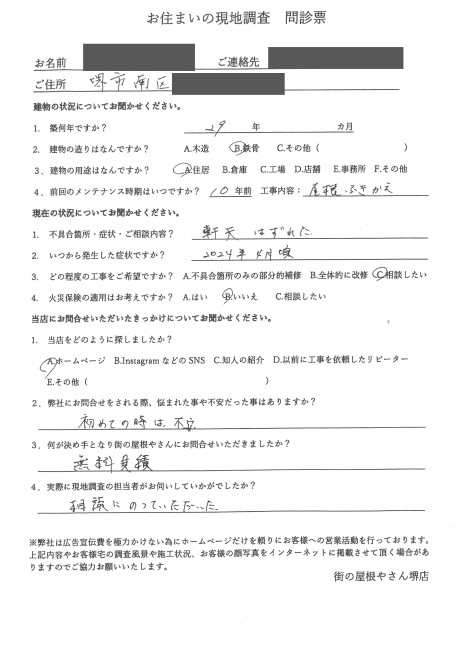 お住まいの現地調査　問診票
お名前　　　ご連絡先
ご住所　堺市南区
建物の状況についてお聞かせください。
1.　築何年ですか？　29　年　　カ月
2.　建物の造りはなんですか？　A.木造　B.鉄骨　C.その他（　　　）
3.　建物の用途はなんですか？　A.住居　B.倉庫　C.工場　D.店舗　E.事務所　F.その他
4.　前回のメンテナンス時期はいつですか？　10　年前　工事内容：屋根ふきかえ
現在の状況についてお聞かせください。
1.　不具合箇所・症状・ご相談内容？　軒天　はずれた
2.　いつから発生した症状ですか？　2024年4月頃
3.　どの程度の工事をご希望ですか？　A.不具合箇所のみの部分的補修　B.全体的に改修　C.相談したい
4.　火災保険の適用はお考えですか？　A.はい　B.いいえ　C.相談したい
当店にお問合せいただいたきっかけについてお聞かせください。
1.　当店をどのように探しましたか？
A.ホームページ　B.InstagramなどのSNS　C.知人の紹介　D.以前に工事を依頼したリピーター
E.その他（　　　）
2．弊社にお問合せをされる際、悩まれた事や不安だった事はありますか？
初めての時は不安
3．何が決め手となり街の屋根やさんにお問合せいただきましたか？
無料見積
4．実際に現地調査の担当者がお伺いしていかがでしたか？
相談にのっていただいた
※弊社は広告宣伝費を極力かけない為にホームページだけを頼りにお客様への営業活動を行っております。
上記内容やお客様宅の調査風景や施工状況、お客様の顔写真をインターネットに掲載させて頂く場合があ
りますのでご協力お願いいたします。
街の屋根やさん堺店